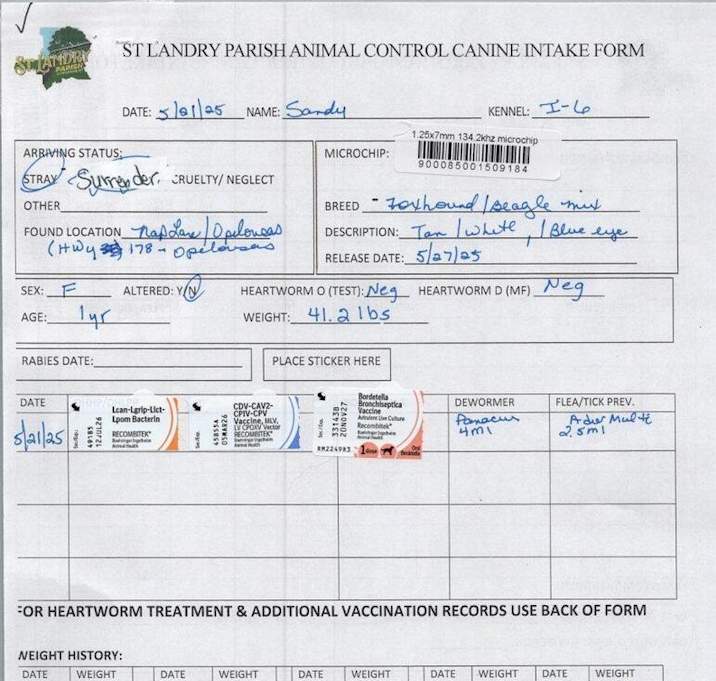 ST LANDRY
PARISH
ST LANDRY PARISH ANIMAL CONTROL CANINE INTAKE FORM
DATE: 5/21/25 NAME: Sandy KENNEL: I-6
ARRIVING STATUS:
STRAY Surrender. CRUELTY/ NEGLECT
OTHER
FOUND LOCATION Nap Lane / Opelousas
(HWY 178 - Opelousas
MICROCHIP:
1.25x7mm 134.2khz microchip
900085001509184
BREED - Foxhound / Beagle mix
DESCRIPTION: Tan / white, 1 Blue eye
RELEASE DATE: 5/27/25
SEX: F ALTERED: Y/N HEARTWORM O (TEST): Neg HEARTWORM D (MF) Neg
AGE: 1yr WEIGHT: 41.2 lbs
RABIES DATE: PLACE STICKER HERE
DATE
5/21/25
Lcan-Lgrip-Lict-
Lpom Bacterin
RECOMBITEK
Boehringer Ingelheim
Animal Health
Ser/Exp.:
49183
22JUL26
CDV-CAV2-
CPIV-CPV
Vaccine, MLV,
LV CPOXV Vector
RECOMBITEK
Boehringer Ingelheim
Animal Health
Ser/Exp.:
45853A
05MAR26
Bordetella
Bronchiseptica
Vaccine
Avirulent Live Culture
Recombitek
Boehringer Ingelheim
Animal Health
33143B
20NOV27
1 dose
Oral
Bordetella
DEWORMER
Panacur
4ml
FLEA/TICK PREV.
Adv Multi
2.5ml
FOR HEARTWORM TREATMENT & ADDITIONAL VACCINATION RECORDS USE BACK OF FORM
WEIGHT HISTORY:
DATE WEIGHT DATE WEIGHT DATE WEIGHT DATE WEIGHT DATE WEIGHT